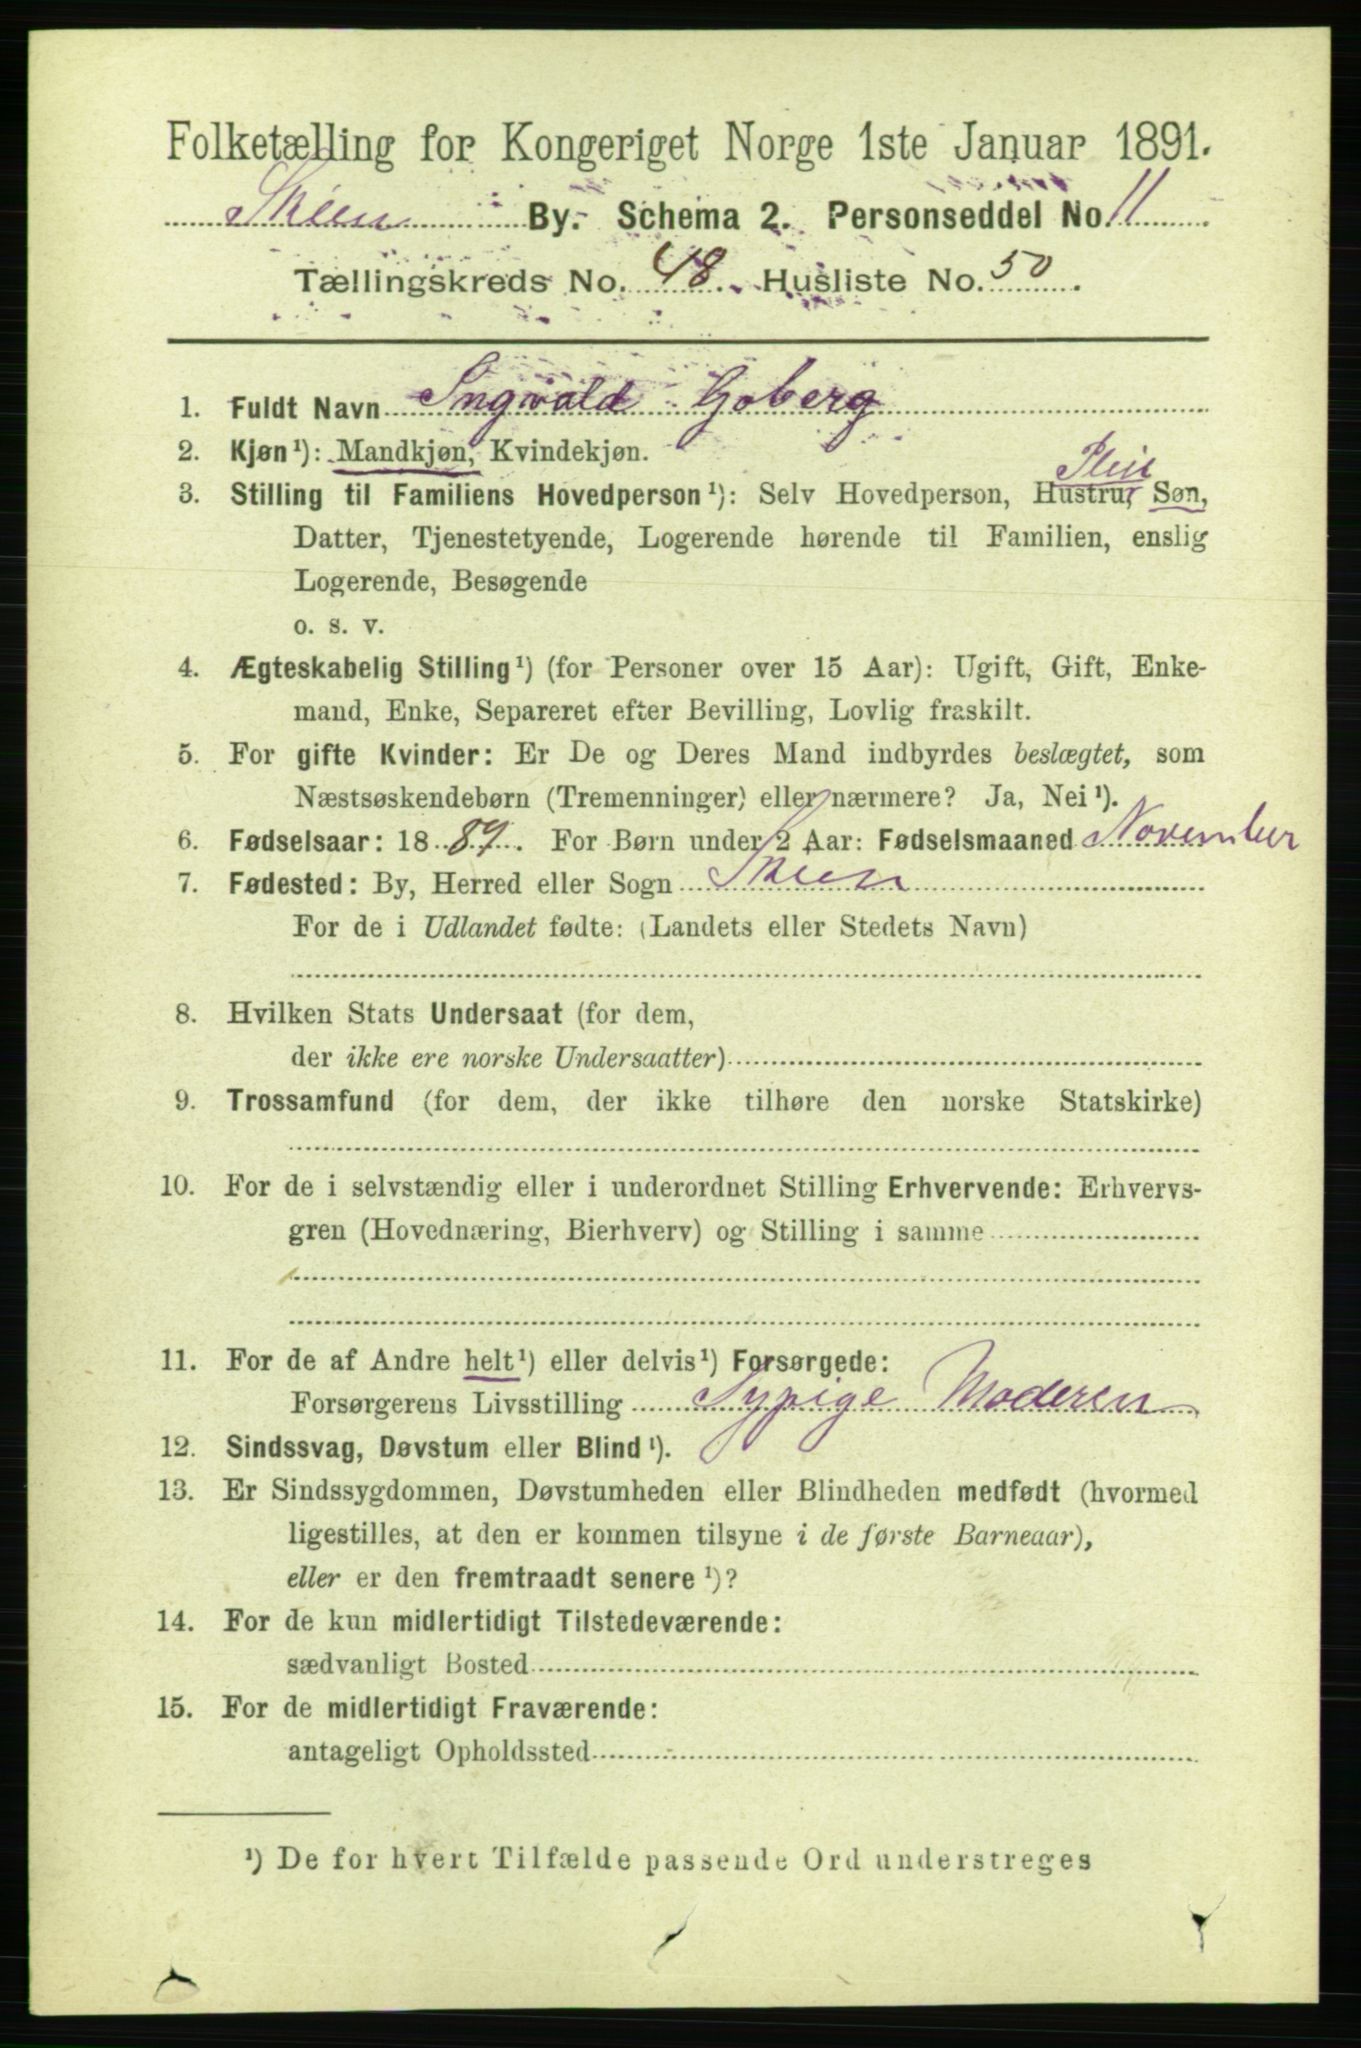 Folketælling for Kongeriget Norge 1ste Januar 1891.
Skien By. Schema 2. Personseddel No. 11
Tællingskreds No. 48. Husliste No. 50.
1. Fuldt Navn Ingvald Goberg
2. Kjøn¹): Mandkjøn, Kvindekjøn.
Pleie
3. Stilling til Familiens Hovedperson¹): Selv Hovedperson, Hustru, Søn,
Datter, Tjenestetyende, Logerende hørende til Familien, enslig
Logerende, Besøgende
o. s. v.
4. Ægteskabelig Stilling¹) (for Personer over 15 Aar): Ugift, Gift, Enke-
mand, Enke, Separeret efter Bevilling, Lovlig fraskilt.
5. For gifte Kvinder: Er De og Deres Mand indbyrdes beslægtet, som
Næstsøskendebørn (Tremenninger) eller nærmere? Ja, Nei¹).
6. Fødselsaar: 1889. For Børn under 2 Aar: Fødselsmaaned November
7. Fødested: By, Herred eller Sogn Skien
For de i Udlandet fødte: (Landets eller Stedets Navn)
8. Hvilken Stats Undersaat (for dem,
der ikke ere norske Undersaatter)
9. Trossamfund (for dem, der ikke tilhøre den norske Statskirke)
10. For de i selvstændig eller i underordnet Stilling Erhvervende: Erhvervs-
gren (Hovednæring, Bierhverv) og Stilling i samme
11. For de af Andre helt¹) eller delvis¹) Forsørgede:
Forsørgerens Livsstilling Sypige Moderen
12. Sindssvag, Døvstum eller Blind¹).
13. Er Sindssygdommen, Døvstumheden eller Blindheden medfødt (hvormed
ligestilles, at den er kommen tilsyne i de første Barneaar),
eller er den fremtraadt senere¹)?
14. For de kun midlertidigt Tilstedeværende:
sædvanligt Bosted
15. For de midlertidigt Fraværende:
antageligt Opholdssted
¹) De for hvert Tilfælde passende Ord understreges